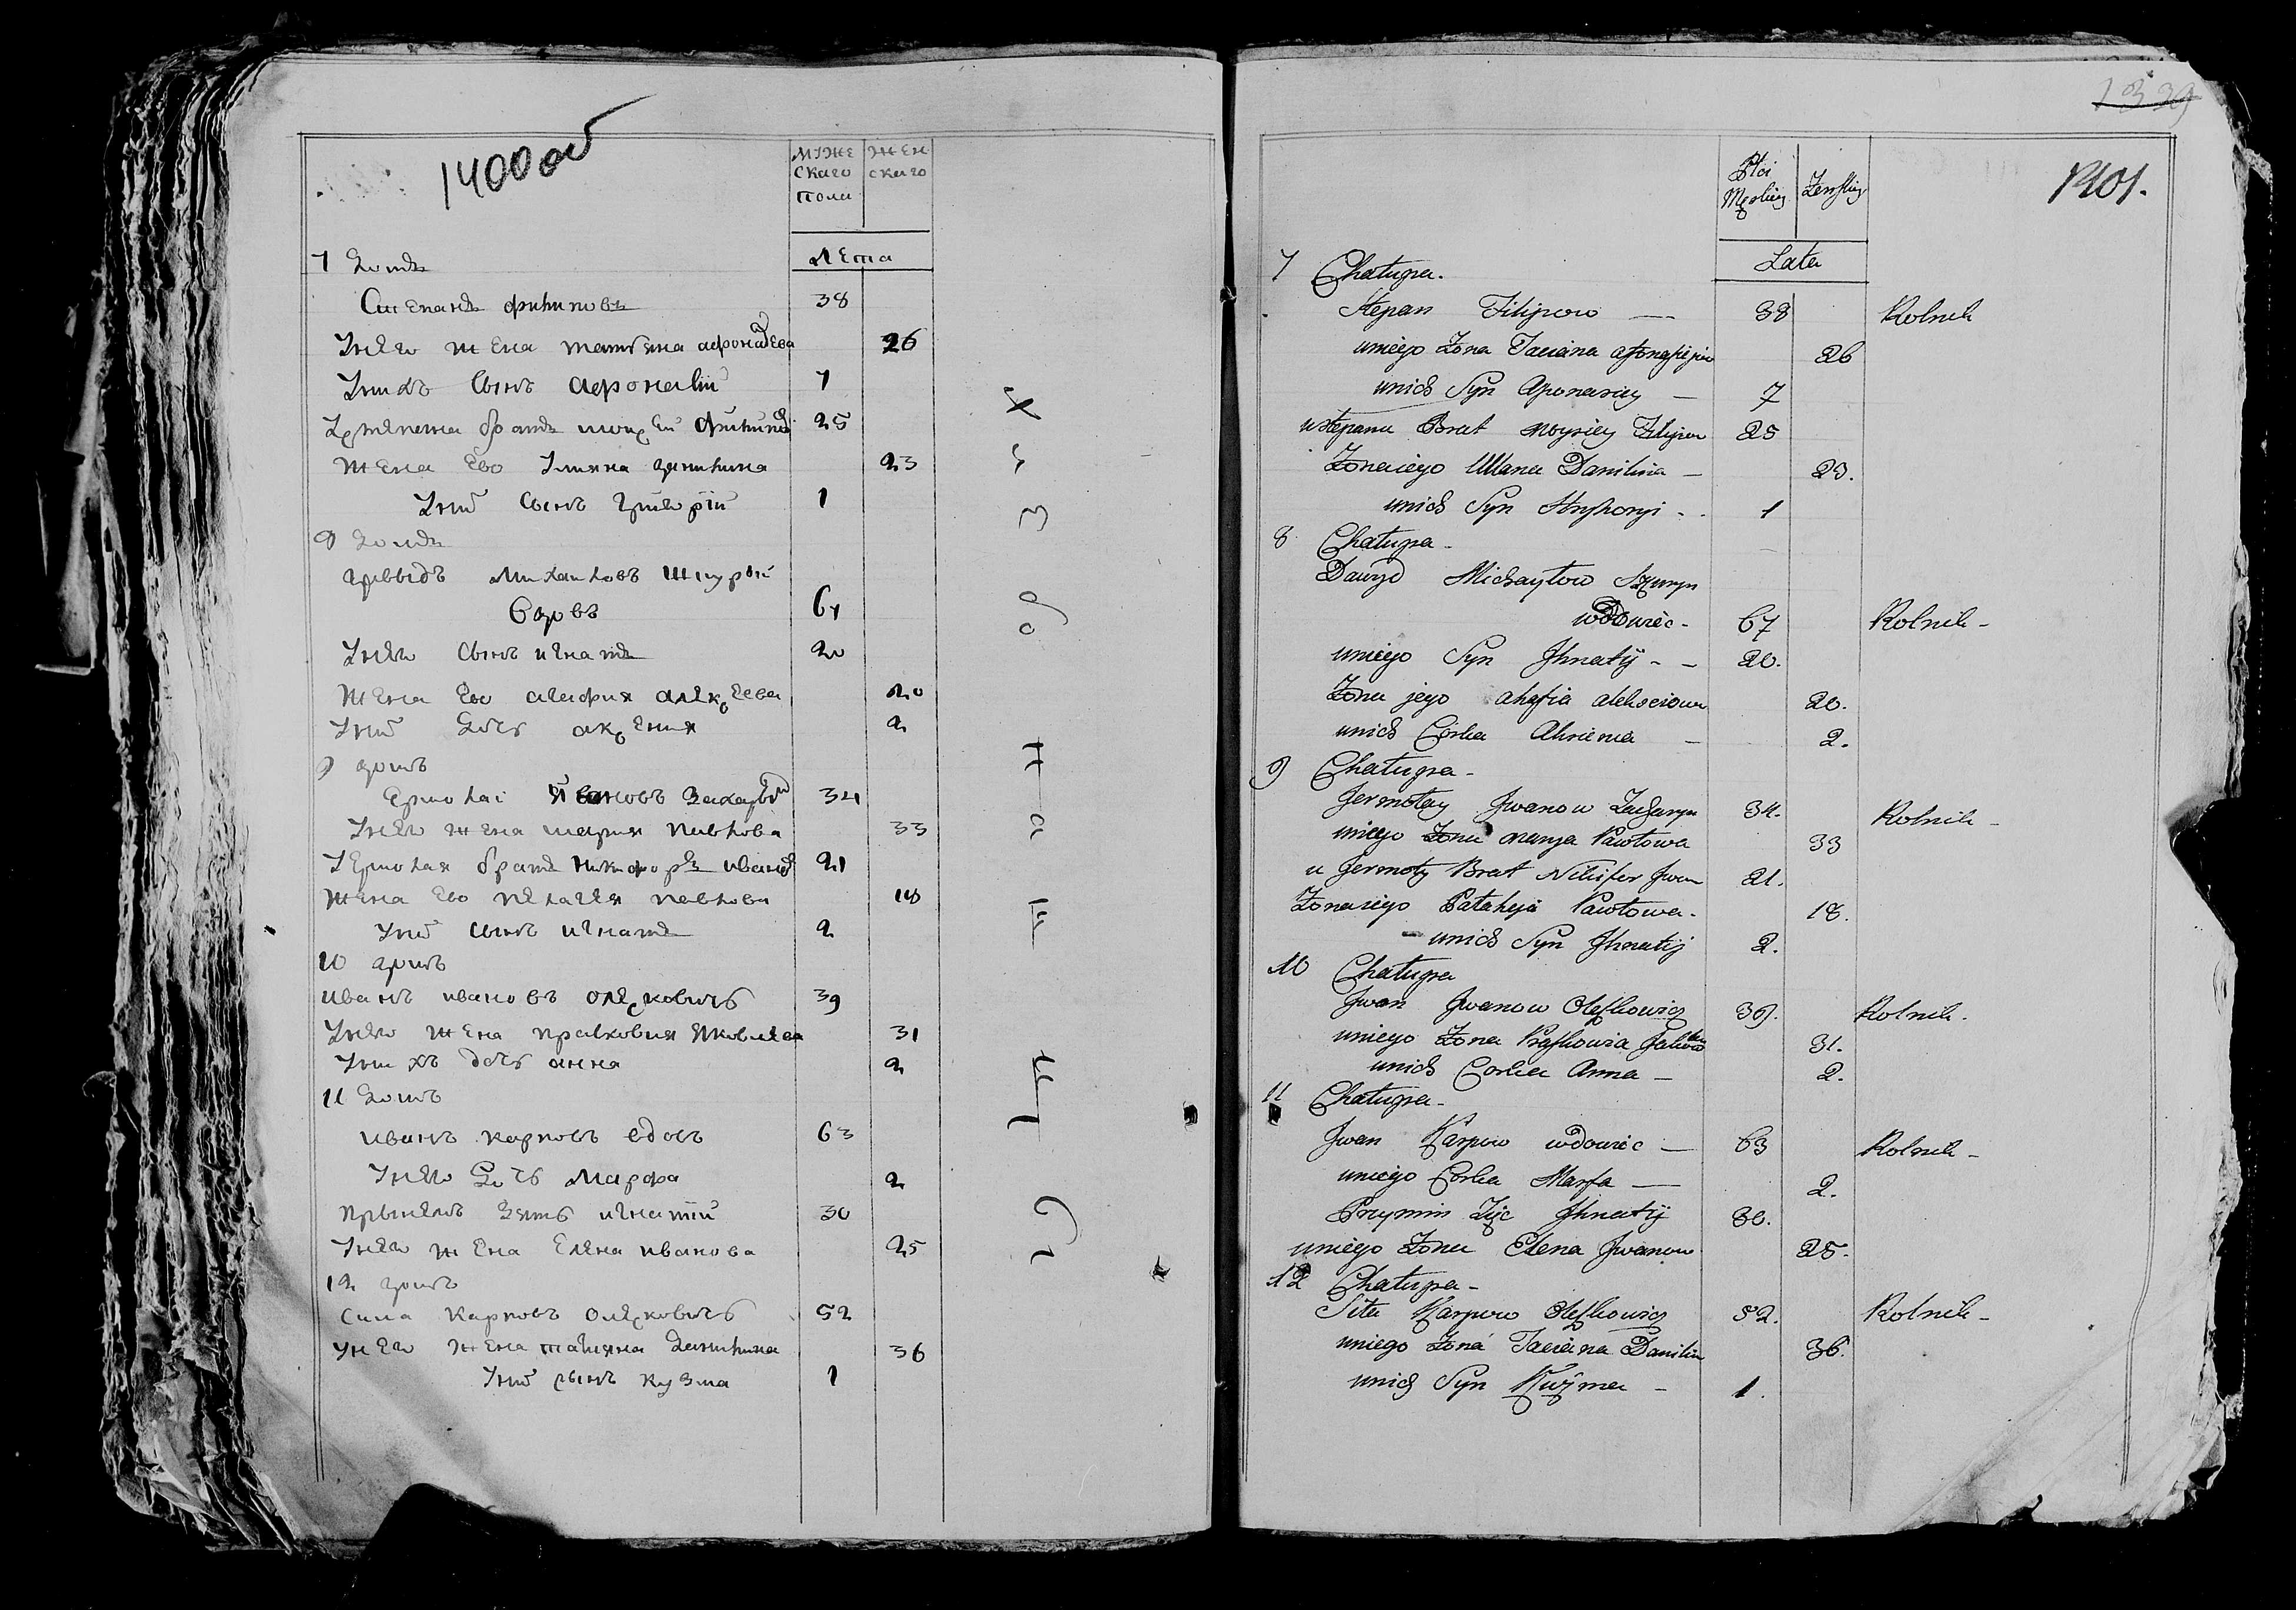 1400 об
мꙋже
скаго
пола
жен
скаго
лета
7 домъ
Степанъ филиповъ 38
Унего жена татьяна афонасева 26
Унихъ сынъ афонасій 7
Устепана братъ моисей филиповъ 25
жена Ево Уляна данилина 23
Уних сынъ григорій 1
8 домъ
давыдъ михаиловъ шчурый
вдовъ 67
Унего сынъ игнатъ 20
жена Ево агафия алексеева 20
Уних дочь аксения 2
9 домъ
Ермолаі Ивановъ Захарын 34
Унего жена мария павлова 33
УЕрмолая братъ никифоръ иванов 21
жена Ево пелагея павлова 18
Уних сынъ игнатъ 2
10 домъ
иванъ ивановъ олесковичъ 39
Унего жена прасковия яковлева 31
Унихъ дочь анна 2
11 домъ
иванъ карповъ вдовъ 63
Унего дочь марфа 2
прынялъ зять игнатій 30
Унего жена Елена иванова 25
12 домъ
сила карповъ олесковичъ 52
унего жена татияна данилина 36
Уних сынъ кузма 1
Płci
Męskiey
Żenskiey
1401.
Lata
7 Chałupa.
Stepan Filipow — 38 Rolnik
uniego Żona Taciana Afonasiejew 26
unich Syn Aponasiey — 7
uStepana Brat Moysiey Filipow 25
Żona iego Ullana Danilina — 23.
unich Syn Hryhoryi - 1
8 Chałupa -
Dawyd Michayłow Szczury
wdowiec - 67 Rolnik -
uniego Syn Jhnatÿ - - 20.
Żona jego ahafia alekseiowa 20.
unich Corka Aksienia — 2.
9 Chałupa -
Jermołay Jwanow Zacharyn 34. Rolnik -
uniego Żona Marya Pawłowa 33
u Jermoły Brat Nikifor Jwan 21.
Żona iego Pałaheja Pawłowa - 18.
unich Syn Jhnatij 2.
10 Chałupa
Jwan Jwanow Oleskowicz 39. Rolnik.
uniego Żona Praskowia Jakowlew 31.
unich Corka Anna — 2.
11 Chałupa -
Jwan Karpow wdowiec — 63 Rolnik -
uniego Corka Marfa — 2.
Przymis Zięc Jhnatÿ 30.
uniego Żona Elena Jwanow 25.
12 Chałupa -
Siła Karpow Oleskowicz 52. Rolnik -
uniego Żoná Taciana Danilin 36.
unich Syn Kuźma - 1.